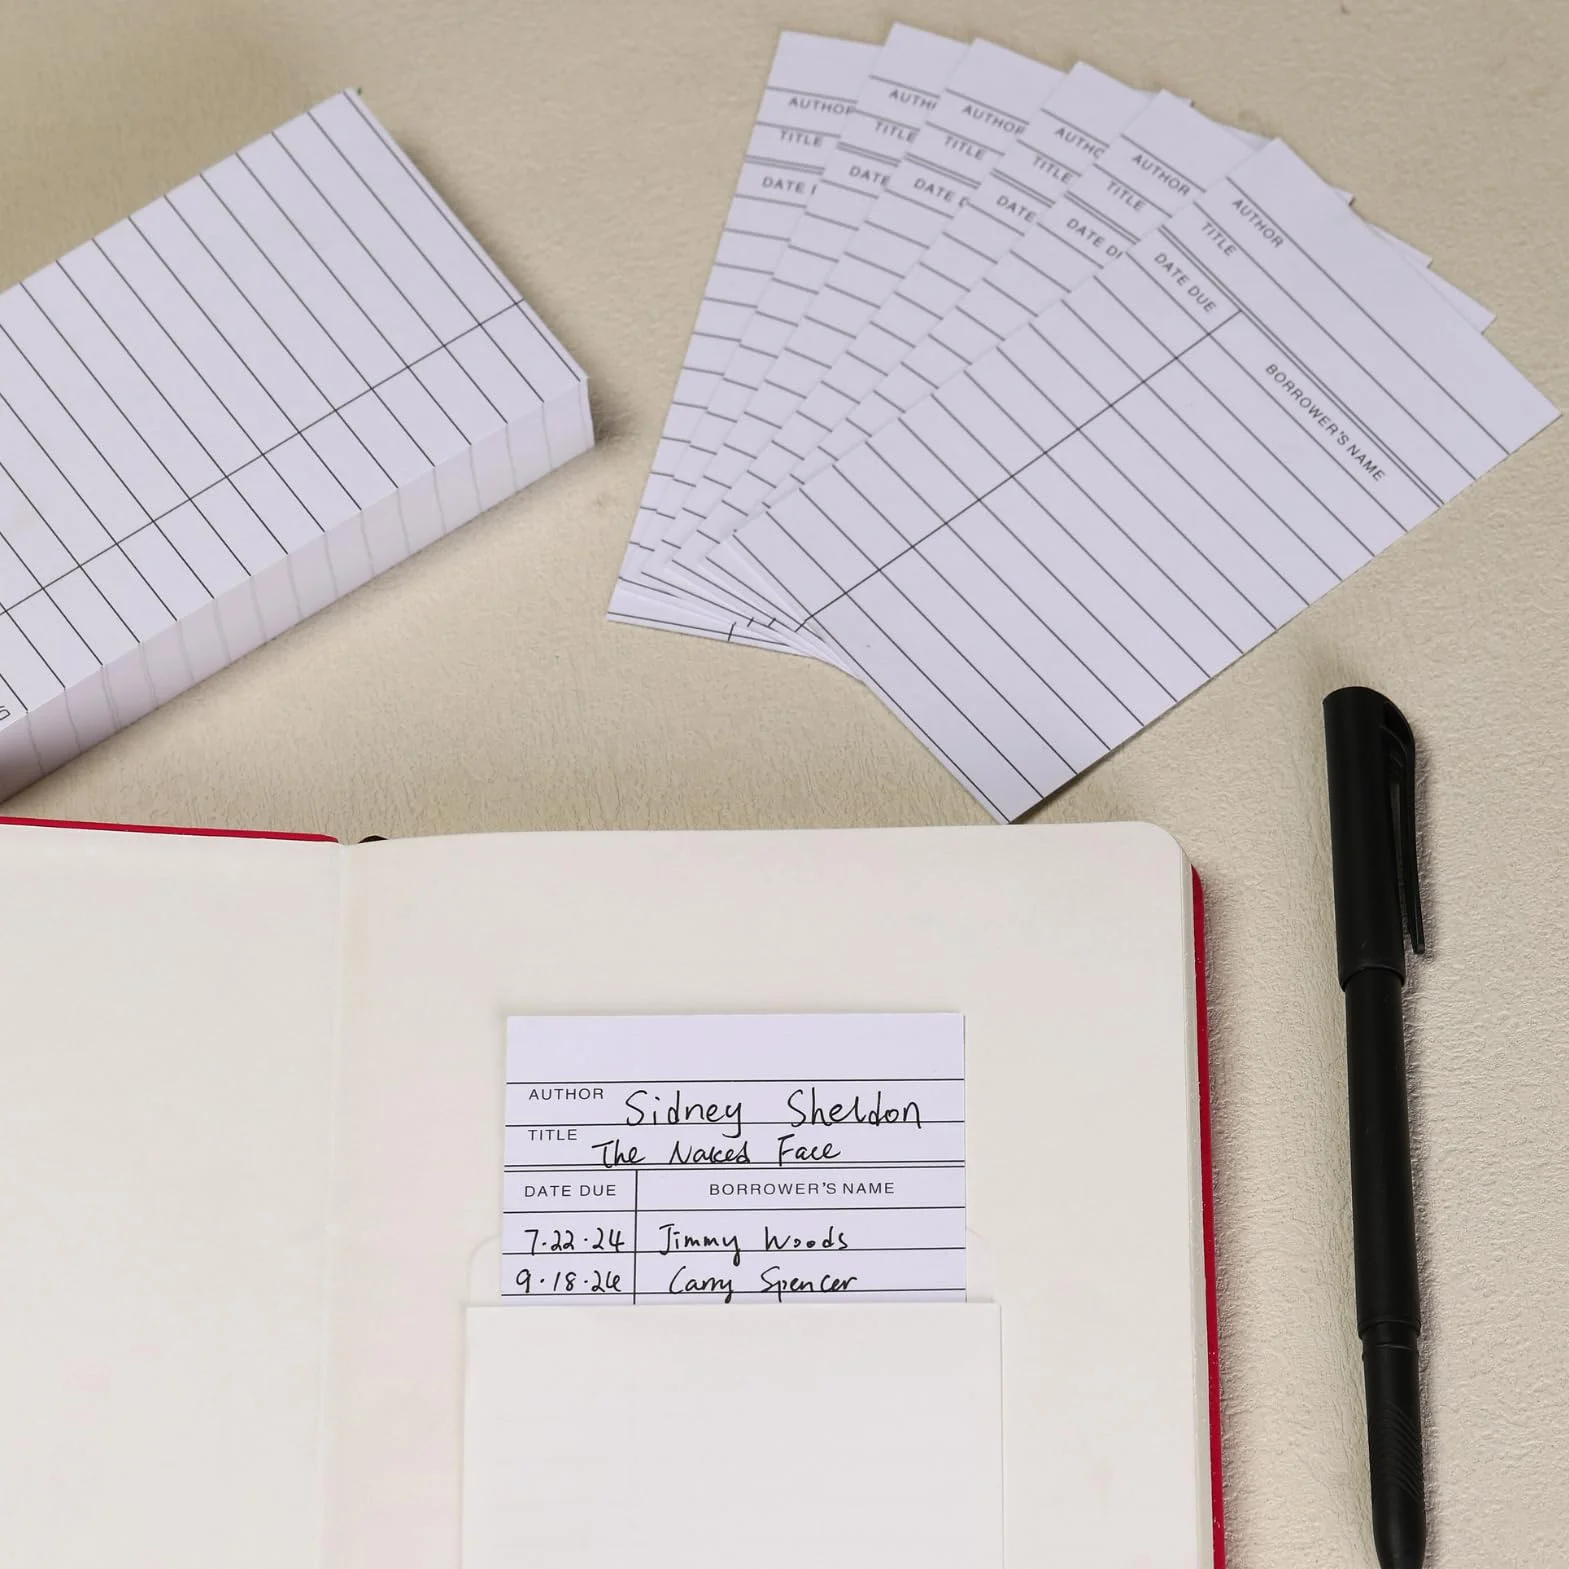 AUTHOR
TITLE
DATE
AUTH
TITLE
DATE
AUTHOR
TITLE
DATE
AUTHO
TITLE
DATE
AUTHOR
TITLE
DATE DU
AUTHOR
TITLE
DATE DUE BORROWER'S NAME
AUTHOR Sidney Sheldon
TITLE The Naked Face
DATE DUE BORROWER'S NAME
7.22.24 Jimmy Woods
9.18.24 Spencer